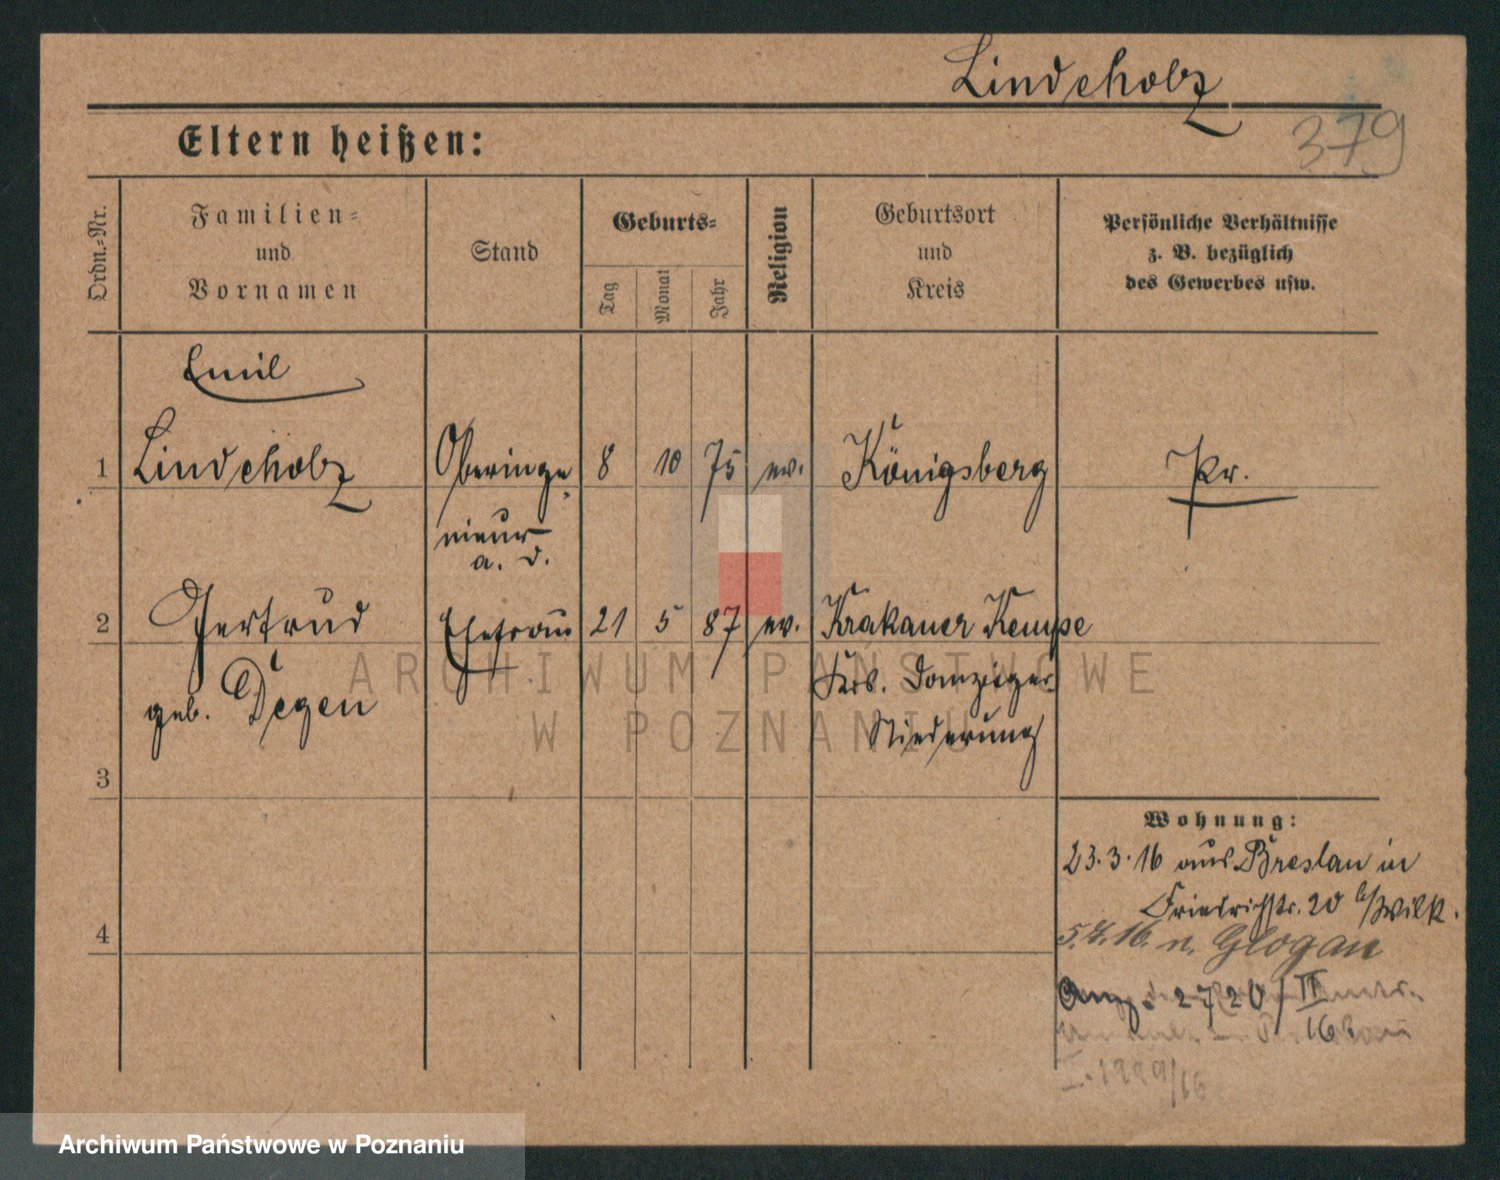 Lindeholz
379
Eltern heißen:
Ordn.-Nr.
Familien-
und
Vornamen
Stand
Geburts-
Tag
Monat
Jahr
Religion
Geburtsort
und
Kreis
Persönliche Verhältnisse
z. B. bezüglich
des Gewerbes usw.
Emil
1 Lindeholz Oberinge- 8 10 75 ev. Königsberg Pr.
nieur
a. D.
2 Gertrud Ehefrau 21 5 87 ev. Krakauer Kempe
geb. Degen
Danziger
Niederung
3
Wohnung:
23.3.16 aus Breslau in
Friedrichstr. 20 b/Wilk.
4
5.7.16 n. Glogau
2720/II
16
I. 1229/16
ARCHIWUM PAŃSTWOWE
W POZNANIU
Archiwum Państwowe w Poznaniu